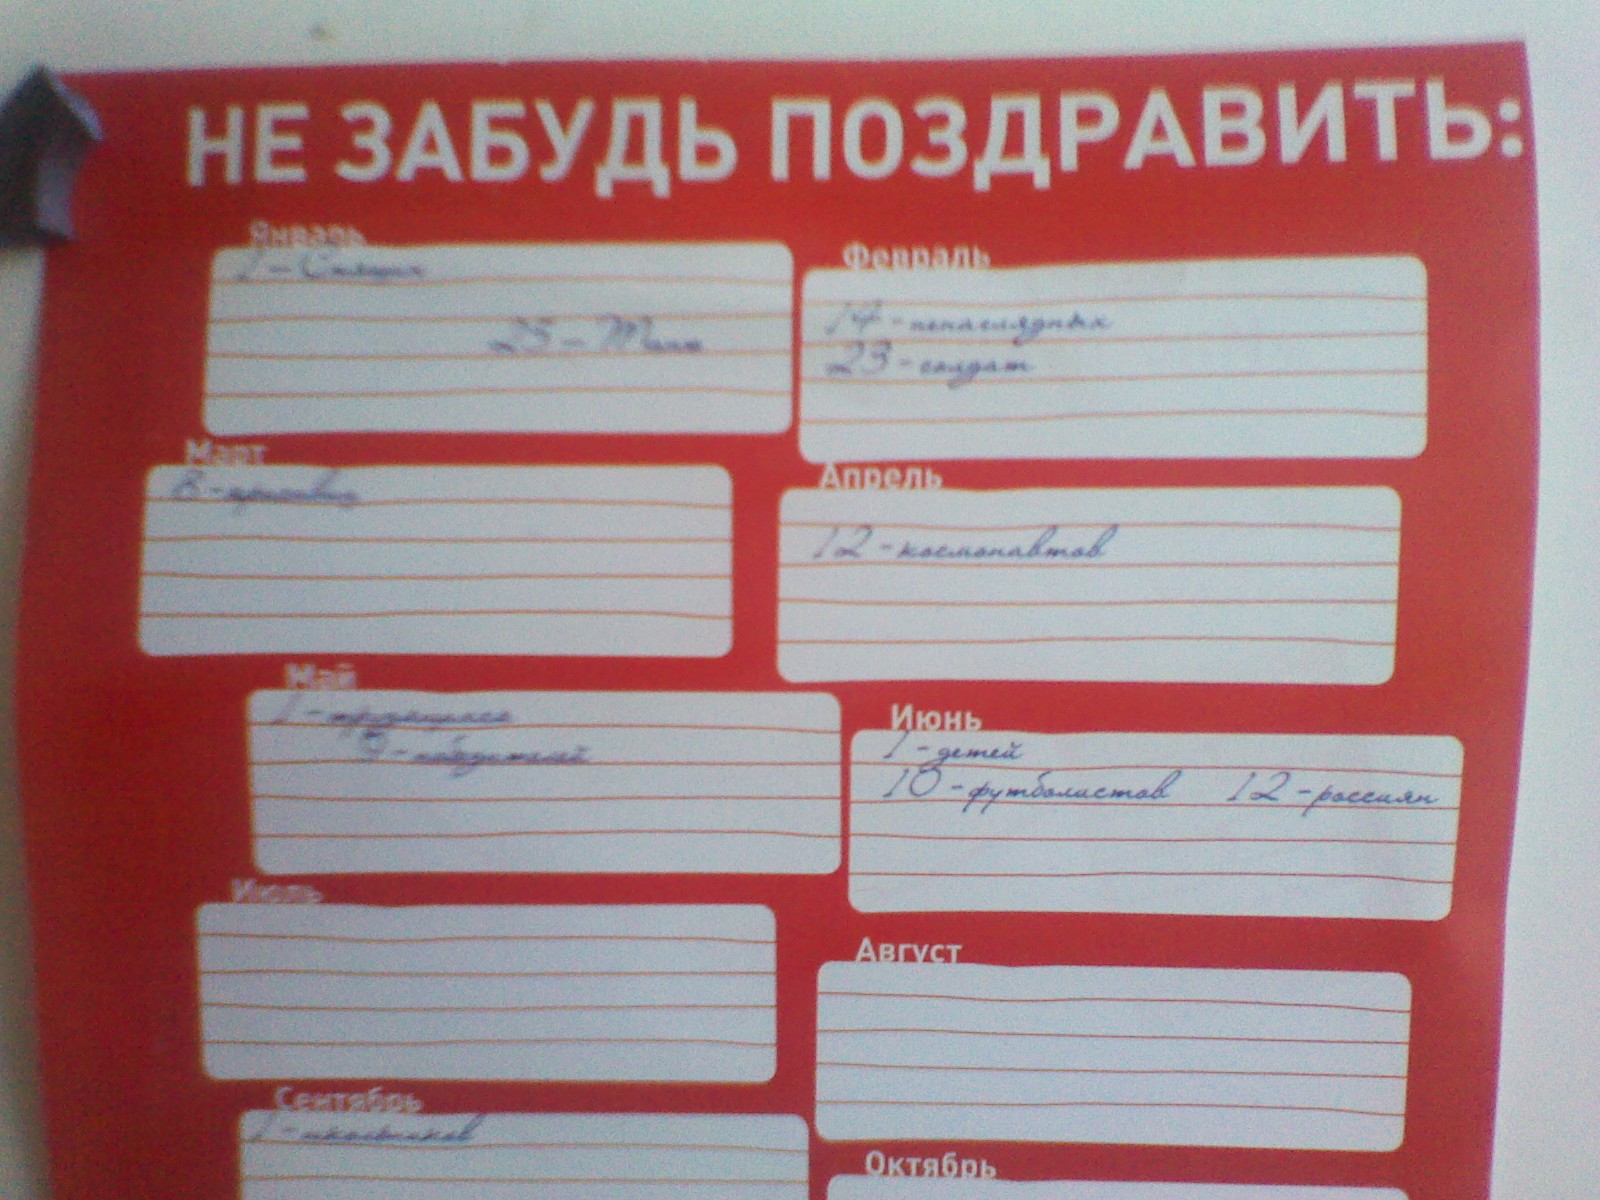 НЕ ЗАБУДЬ ПОЗДРАВИТЬ:
Январь
1 - Спящих
25 - Таню
Февраль
14 - ненаглядных
23 - солдат
Март
8 - красавиц
Апрель
12 - космонавтов
Май
1 - трудящихся
9 - победителей
Июнь
1 - детей
10 - футболистов 12 - россиян
Июль
Август
Сентябрь
1 - школьников
Октябрь